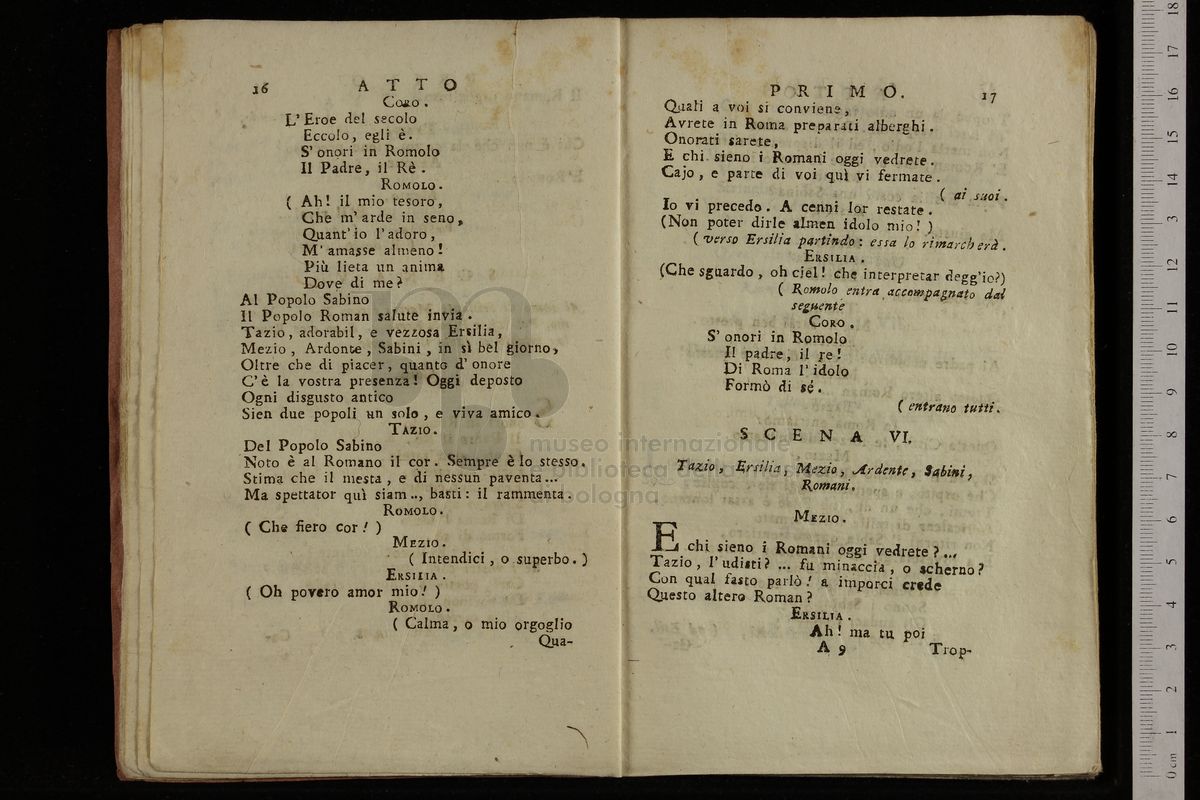 16 ATTO
CORO.
L'Eroe del secolo
Eccolo, egli è.
S'onori in Romolo
Il Padre, il Rè.
ROMOLO.
( Ah! il mio tesoro,
Che m'arde in seno,
Quant'io l'adoro,
M'amasse almeno!
Più lieta un anima
Dove di me?
Al Popolo Sabino
Il Popolo Roman salute invia.
Tazio, adorabil, e vezzosa Ersilia,
Mezio, Ardonte, Sabini, in sì bel giorno,
Oltre che di piacer, quanto d'onore
C'è la vostra presenza! Oggi deposto
Ogni disgusto antico
Sien due popoli un solo, e viva amico.
TAZIO.
Del Popolo Sabino
Noto è al Romano il cor. Sempre è lo stesso.
Stima che il mesta, e di nessun paventa...
Ma spettator quì siam.., basti: il rammenta.
ROMOLO.
( Che fiero cor! )
MEZIO.
( Intendici, o superbo. )
ERSILIA.
( Oh povero amor mio! )
ROMOLO.
( Calma, o mio orgoglio
Qua-
PRIMO. 17
Quali a voi si conviene,
Avrete in Roma preparati alberghi.
Onorati sarete,
E chi sieno i Romani oggi vedrete.
Cajo, e parte di voi quì vi fermate.
( ai suoi.
Io vi precedo. A cenni lor restate.
(Non poter dirle almen idolo mio! )
( verso Ersilia partindo: essa lo rimarcherà.
ERSILIA.
(Che sguardo, oh ciel! che interpretar degg'io?)
( Romolo entra accompagnato dal
seguente
CORO.
S'onori in Romolo
Il padre, il re!
Di Roma l'idolo
Formò di sé.
( entrano tutti.
SCENA VI.
Tazio, Ersilia, Mezio, Ardente, Sabini,
Romani.
MEZIO.
E chi sieno i Romani oggi vedrete?...
Tazio, l'udisti? ... fu minaccia, o scherno?
Con qual fasto parlò! a imporci crede
Questo altero Roman?
ERSILIA.
Ah! ma tu poi
A 9 Trop-
museo internazionale
e biblioteca della musica
bologna
0 cm 1 2 3 4 5 6 7 8 9 10 11 12 13 14 15 16 17 18